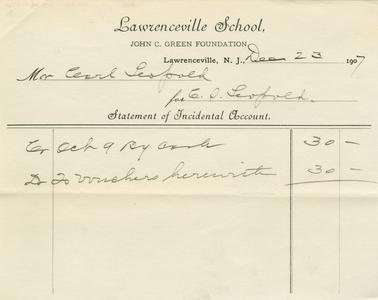 Lawrenceville School,
JOHN C. GREEN FOUNDATION
Lawrenceville, N. J., Dec 23 1907
Mr Carl Leopold
for C. A. Leopold.
Statement of Incidental Account.
Cr Oct 9 By Cash 30 –
Dr To vouchers herewith 30 –